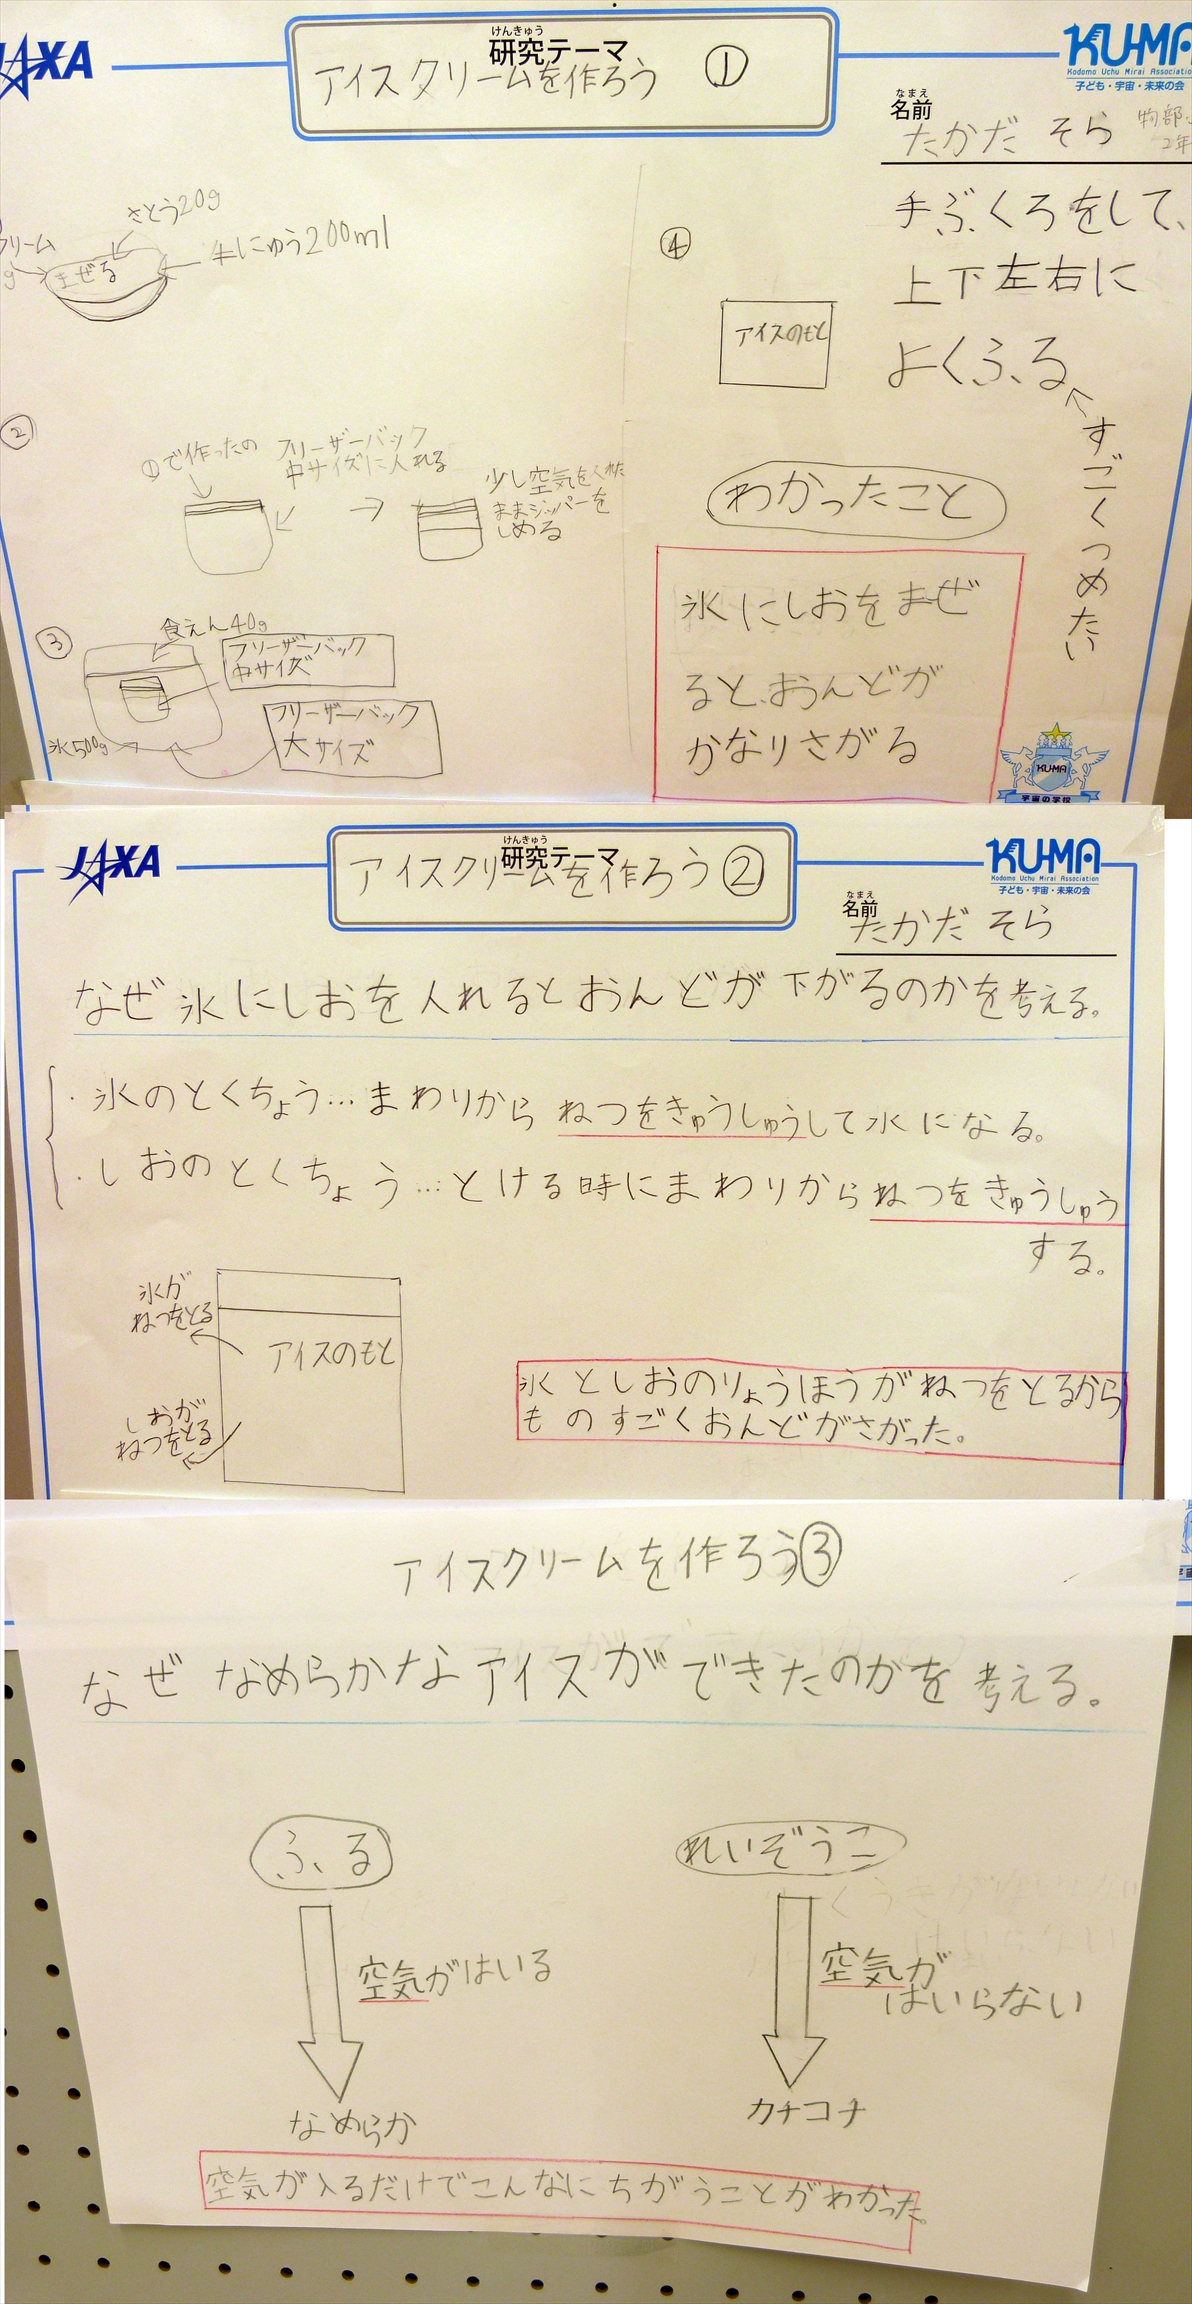 JAXA
けんきゅう
研究テーマ
アイスクリームを作ろう ①
KU-MA
Kodomo Uchu Mirai Association
子ども・宇宙・未来の会
なまえ
名前
たかだ そら
物部
2年
さとう20g
クリーム
g
まぜる
牛にゅう200ml
②
①で作ったの
フリーザーバック
中サイズに入れる
少し空気を入れた
ままジッパーを
しめる
③
食えん40g
フリーザーバック
中サイズ
フリーザーバック
大サイズ
氷500g
④
アイスのもと
手ぶくろをして、
上下左右に
よくふる
すごくつめたい
わかったこと
氷にしおをまぜ
ると、おんどが
かなりさがる
KU-MA
宇宙の学校
JAXA
けんきゅう
研究テーマ
アイスクリームを作ろう②
KU-MA
Kodomo Uchu Mirai Association
子ども・宇宙・未来の会
なまえ
名前
たかだ そら
なぜ氷にしおを入れるとおんどが下がるのかを考える。
・氷のとくちょう…まわりからねつをきゅうしゅうして水になる。
・しおのとくちょう…とける時にまわりからねつをきゅうしゅう
する。
氷が
ねつをとる
アイスのもと
しおが
ねつをとる
氷としおのりょうほうがねつをとるから
ものすごくおんどがさがった。
アイスクリームを作ろう③
なぜなめらかなアイスができたのかを考える。
ふる
空気がはいる
なめらか
れいぞうこ
空気が
はいらない
カチコチ
空気が入るだけでこんなにちがうことがわかった。